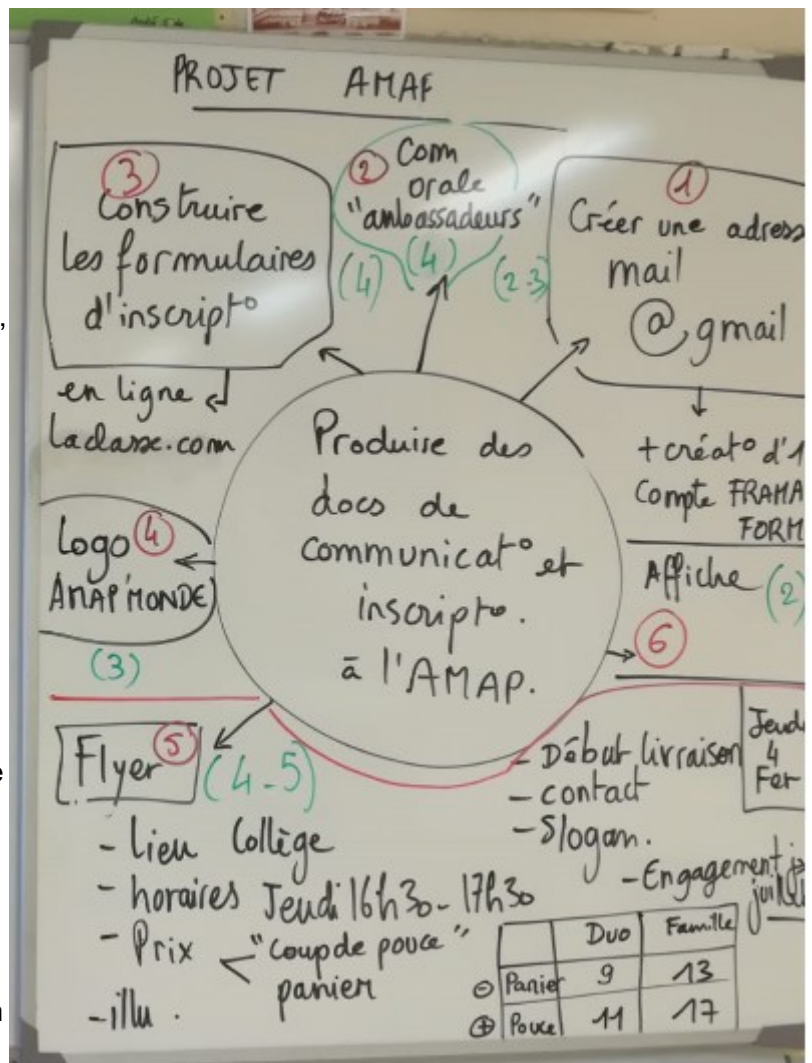 PROJET AMAP
③
Construire
les formulaires
d'inscript°
en ligne
Laclasse.com
② Com
orale
"ambassadeurs"
(4) (4) (2-3)
①
Créer une adress
mail
@gmail
+ créat° d'1
Compte FRAMA
FORM
Produire des
docs de
communicat° et
inscript°.
à l'AMAP.
Logo ④
AMAP'MONDE
(3)
Affiche (2)
⑥
Flyer ⑤ (4-5)
- lieu Collège
- horaires Jeudi 16h30-17h30
- Prix < "coup de pouce"
panier
- illu.
- Début livraison
- contact
- Slogan.
Jeudi
4
Fer
- Engagement
Duo Famille
⊖ Panier 9 13
⊕ Pouce 11 17